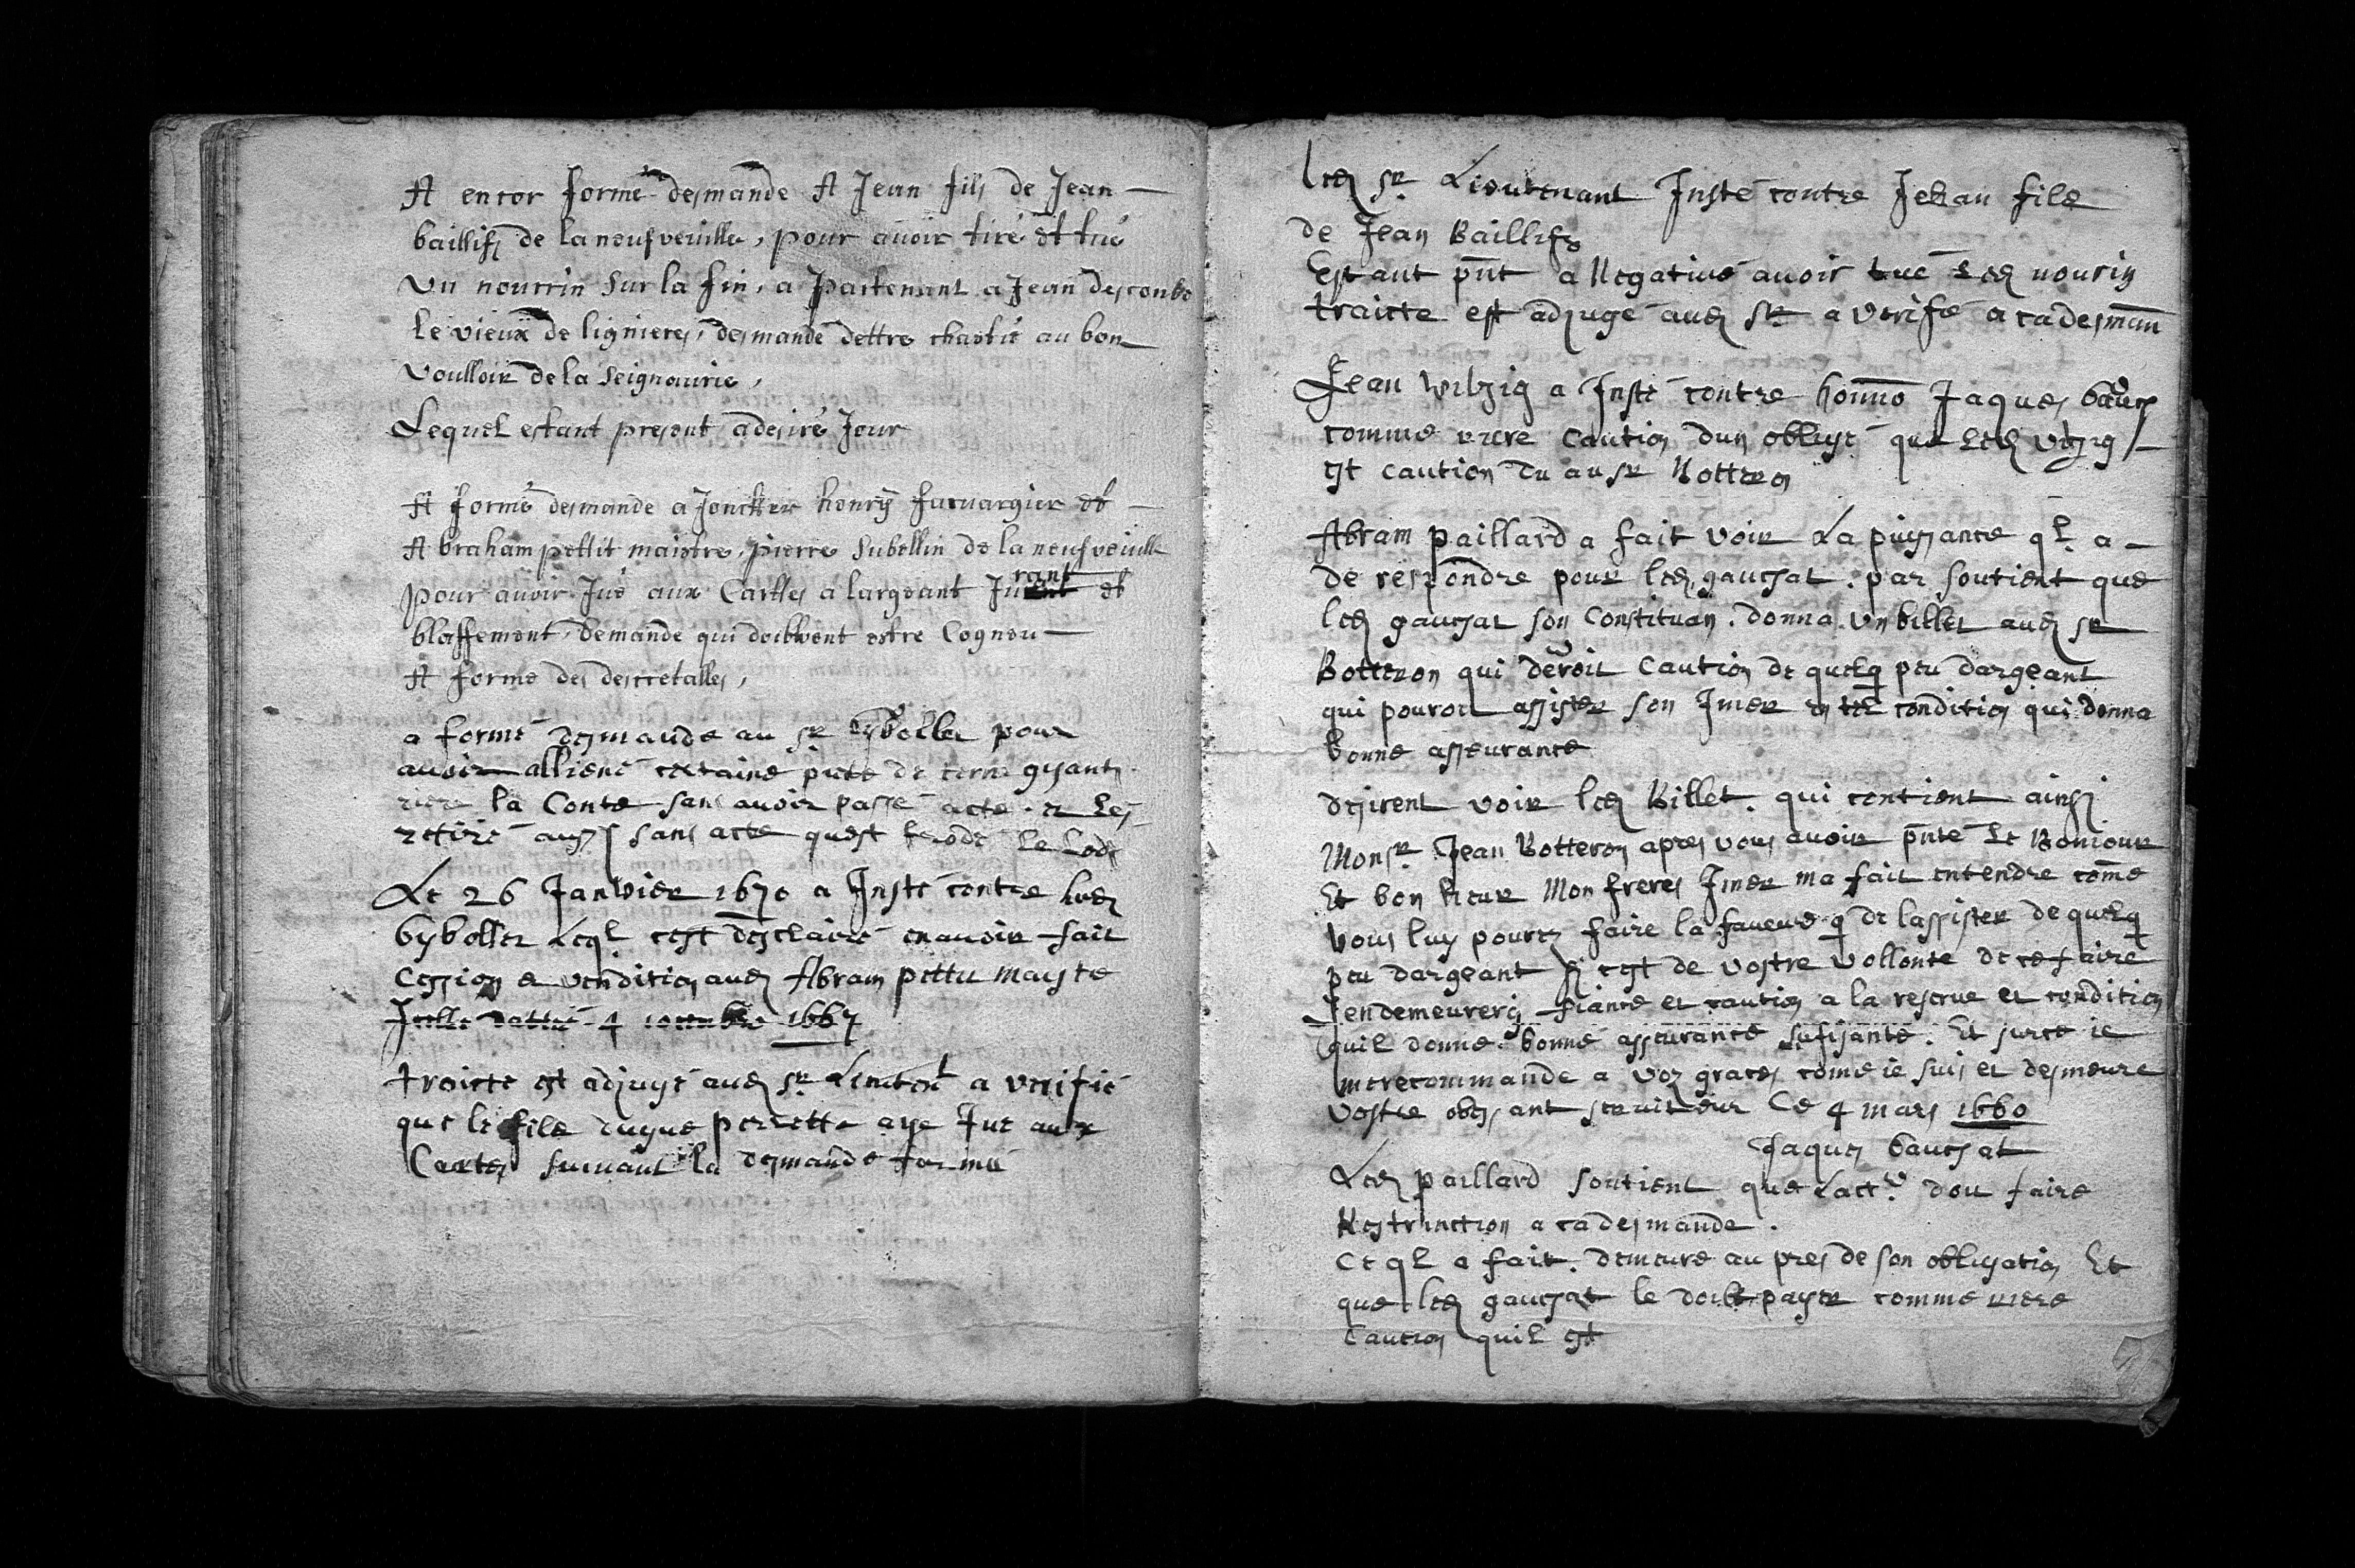 A encor formé desmande A Jean fils de Jean
baillif de la neufveville, pour avoir tiré et tué
Un nourrin sur la fin, a partenant a Jean descombe
le vieux de lignieres, desmande dettre chastié au bon
Voulloir de la Seignourie,
Lequel estant present a desiré Jour
A formé desmande a Jonckker henry et
Abraham pettit maistre, pierre Subellin de la neufveville
pour avoir Jué aux Carttes a largeant Ju rant et
blaffement, demande qui doibvent estre Cognou
A forme des descretalles,
a formé desmande au sr pour
avoir alliené certaine piece de terre gisant
riere la Conte sans avoir passé acte. et les
retiré aussy sans acte quest le lod
Le 26 Janvier 1670 a Insté contre led
Gyboller Leql cest desclairé en avoir fait
Cession et vendition aud Abram pettit maistre
Icelle datté 4 1667
traicte est adjugé aud sr Lieutent a verifié
que le filz dugue perrette aye Jué aux
Cartes suivant la desmande formée
led sr. Lieutenant Insté contre Jehan filz
de Jean Baillif
Estant pnt a Negativé avoir tué led nourin
traicte est adjugé aud Sr a verifié a ca desman
Jean witzig a Insté contre honno Jaques
comme riere Caution dun obligé que led vitzig
est caution du au sr Botteron
Abram paillard a fait voir La puissance ql. a
de respondre pour led gauchat. par soutient que
led gauchat son Constituan. donna un billet aud sr
Botteron qui devoit Caution de quelq peu dargeant
qui pouroit assister son Imer en tel condition qui donna
bonne asseurance
desirent voir led Billet. qui contient ainsy
Monsr. Jean Botteron apres vous avoir pnté le Bonjour
Et bon heur Mon freres Imer ma fait entendre come
Vous luy pouves faire la faveure q de lassister de quelq
peu dargeant sy cest de vostre vollonte de ce faire
Jendemeurery fiance et caution a la reserve et condition
quil donne bonne asseurance sufisante. Et surce ie
me recommande a voz graces come ie suis et desmeure
vostre obeisant serviteur Ce 4 mars 1660
Jaques Gauchat
Led paillard soutient que Lactr doit faire
Restrinction a ca desmande.
Ce ql a fait. demeure au pres de son obligation Et
que led gauchat le doibt payer comme riere
Caution quil est